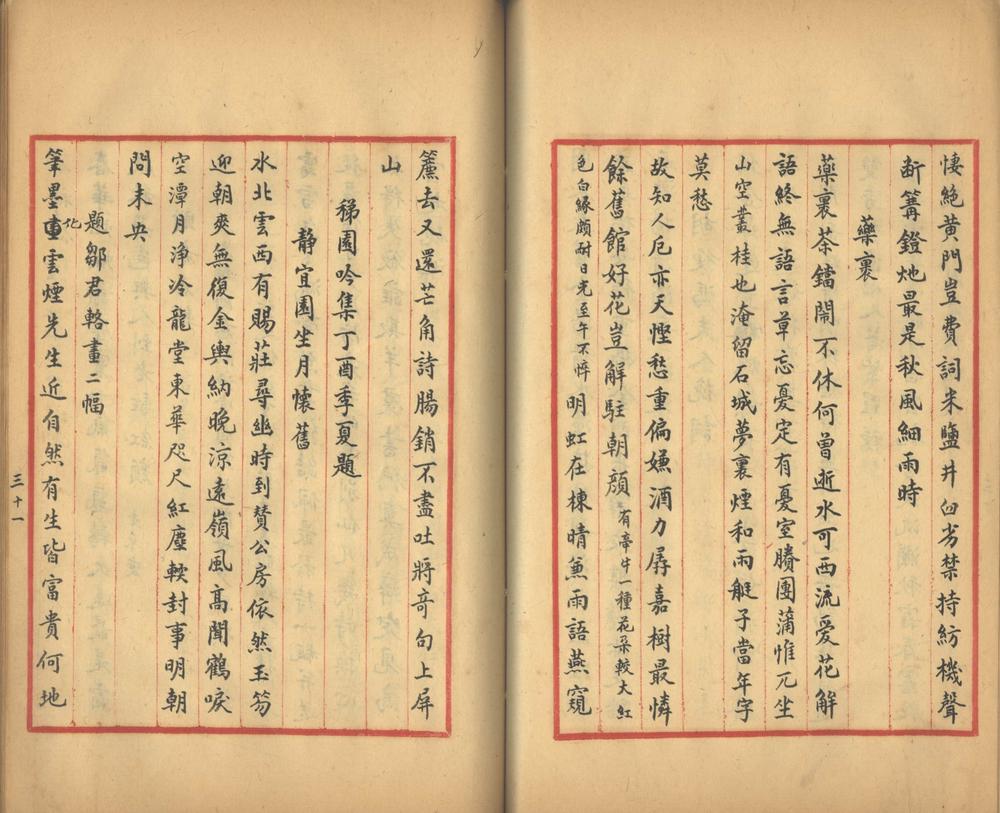 悽絕黃門豈費詞米鹽井臼劣禁持紡機聲
斷篝鐙灺最是秋風細雨時
藥裹
藥裹茶鐺鬧不休何曾逝水可西流愛花解
語終無語言草忘憂定有憂室賸團蒲惟兀坐
山空叢桂也淹留石城夢裏煙和雨艇子當年字
莫愁
故知人厄亦天慳愁重偏嫌酒力孱嘉樹最憐
餘舊館好花豈解駐朝顏有牽牛一種花朵較大紅
色白緣頗耐日光至午不悴明虹在棟晴兼雨語燕窺
簾去又還芒角詩腸銷不盡吐將奇句上屏
山
稊園吟集丁酉季夏題
靜宜園坐月懷舊
水北雲西有賜莊尋幽時到贊公房依然玉笏
迎朝爽無復金輿納晚涼遠嶺風高聞鶴唳
空潭月淨冷龍堂東華咫尺紅塵輭封事明朝
問未央
題鄒君輅畫二幅
筆墨重化雲煙先生近自然有生皆富貴何地
三十一